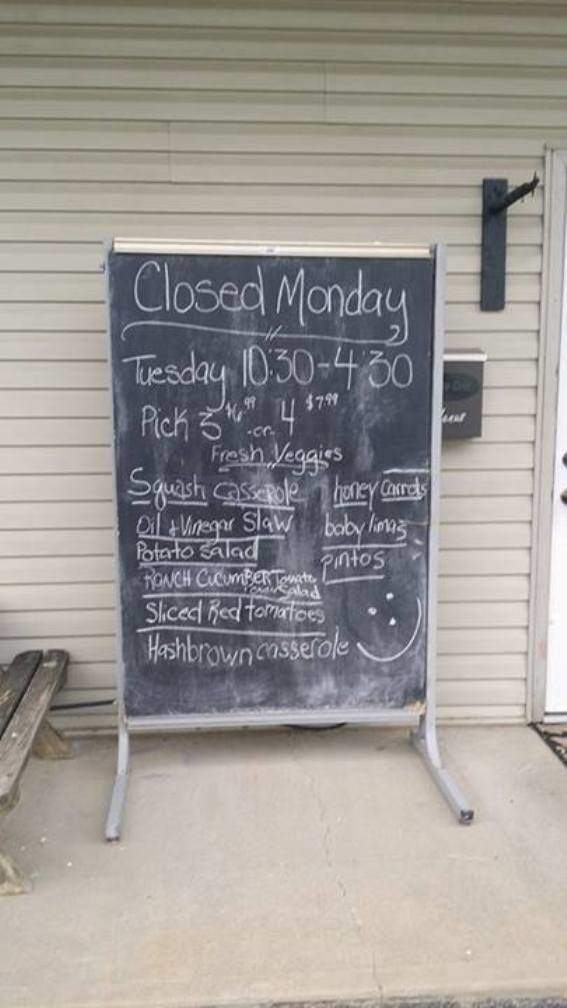 Closed Monday
Tuesday 10:30-4:30
Pick 3 $6.99 -or- 4 $7.99
Fresh Veggies
Squash Casserole
Oil + Vinegar Slaw
Potato Salad
RANCH CUCUMBER Tomato
Salad
Sliced Red tomatoes
Hashbrown casserole
honey Carrots
baby limas
pintos